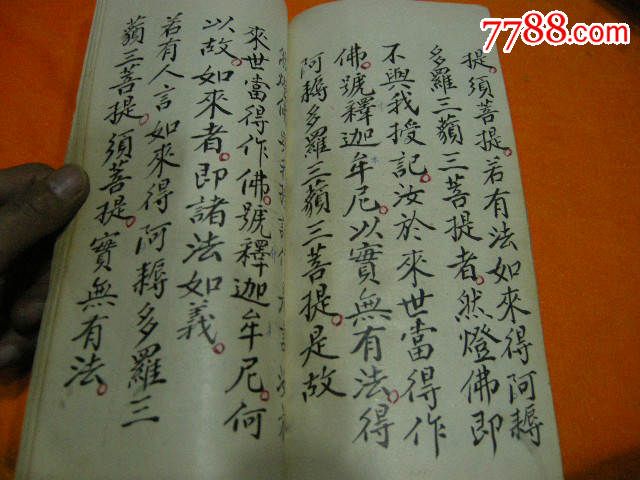 7788.com
提。須菩提。若有法如來得阿耨
多羅三藐三菩提者。然燈佛即
不與我授記。汝於來世當得作
佛。號釋迦牟尼。以實無有法。得
阿耨多羅三藐三菩提。是故
來世當得作佛。號釋迦牟尼。何
以故。如來者。即諸法如義。
若有人言如來得阿耨多羅三
藐三菩提。須菩提。實無有法。